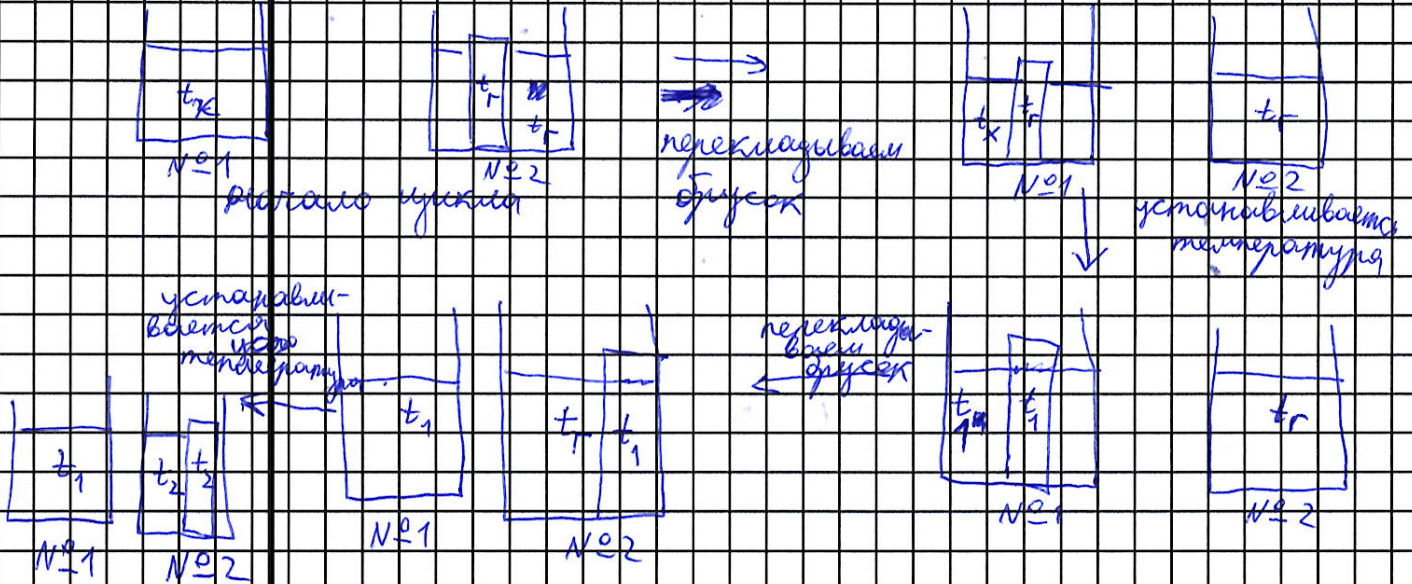 tх
tг
tг
№1
№2
начало цикла
перекладываем
брусок
tх
tг
tг
№1
№2
устанавливается
температура
устанавли-
вается
температура
t₁
t₂
t₂
№1
№2
t₁
tг
t₁
№1
№2
переклады-
ваем
брусок
t₁
t₁
tг
№1
№2